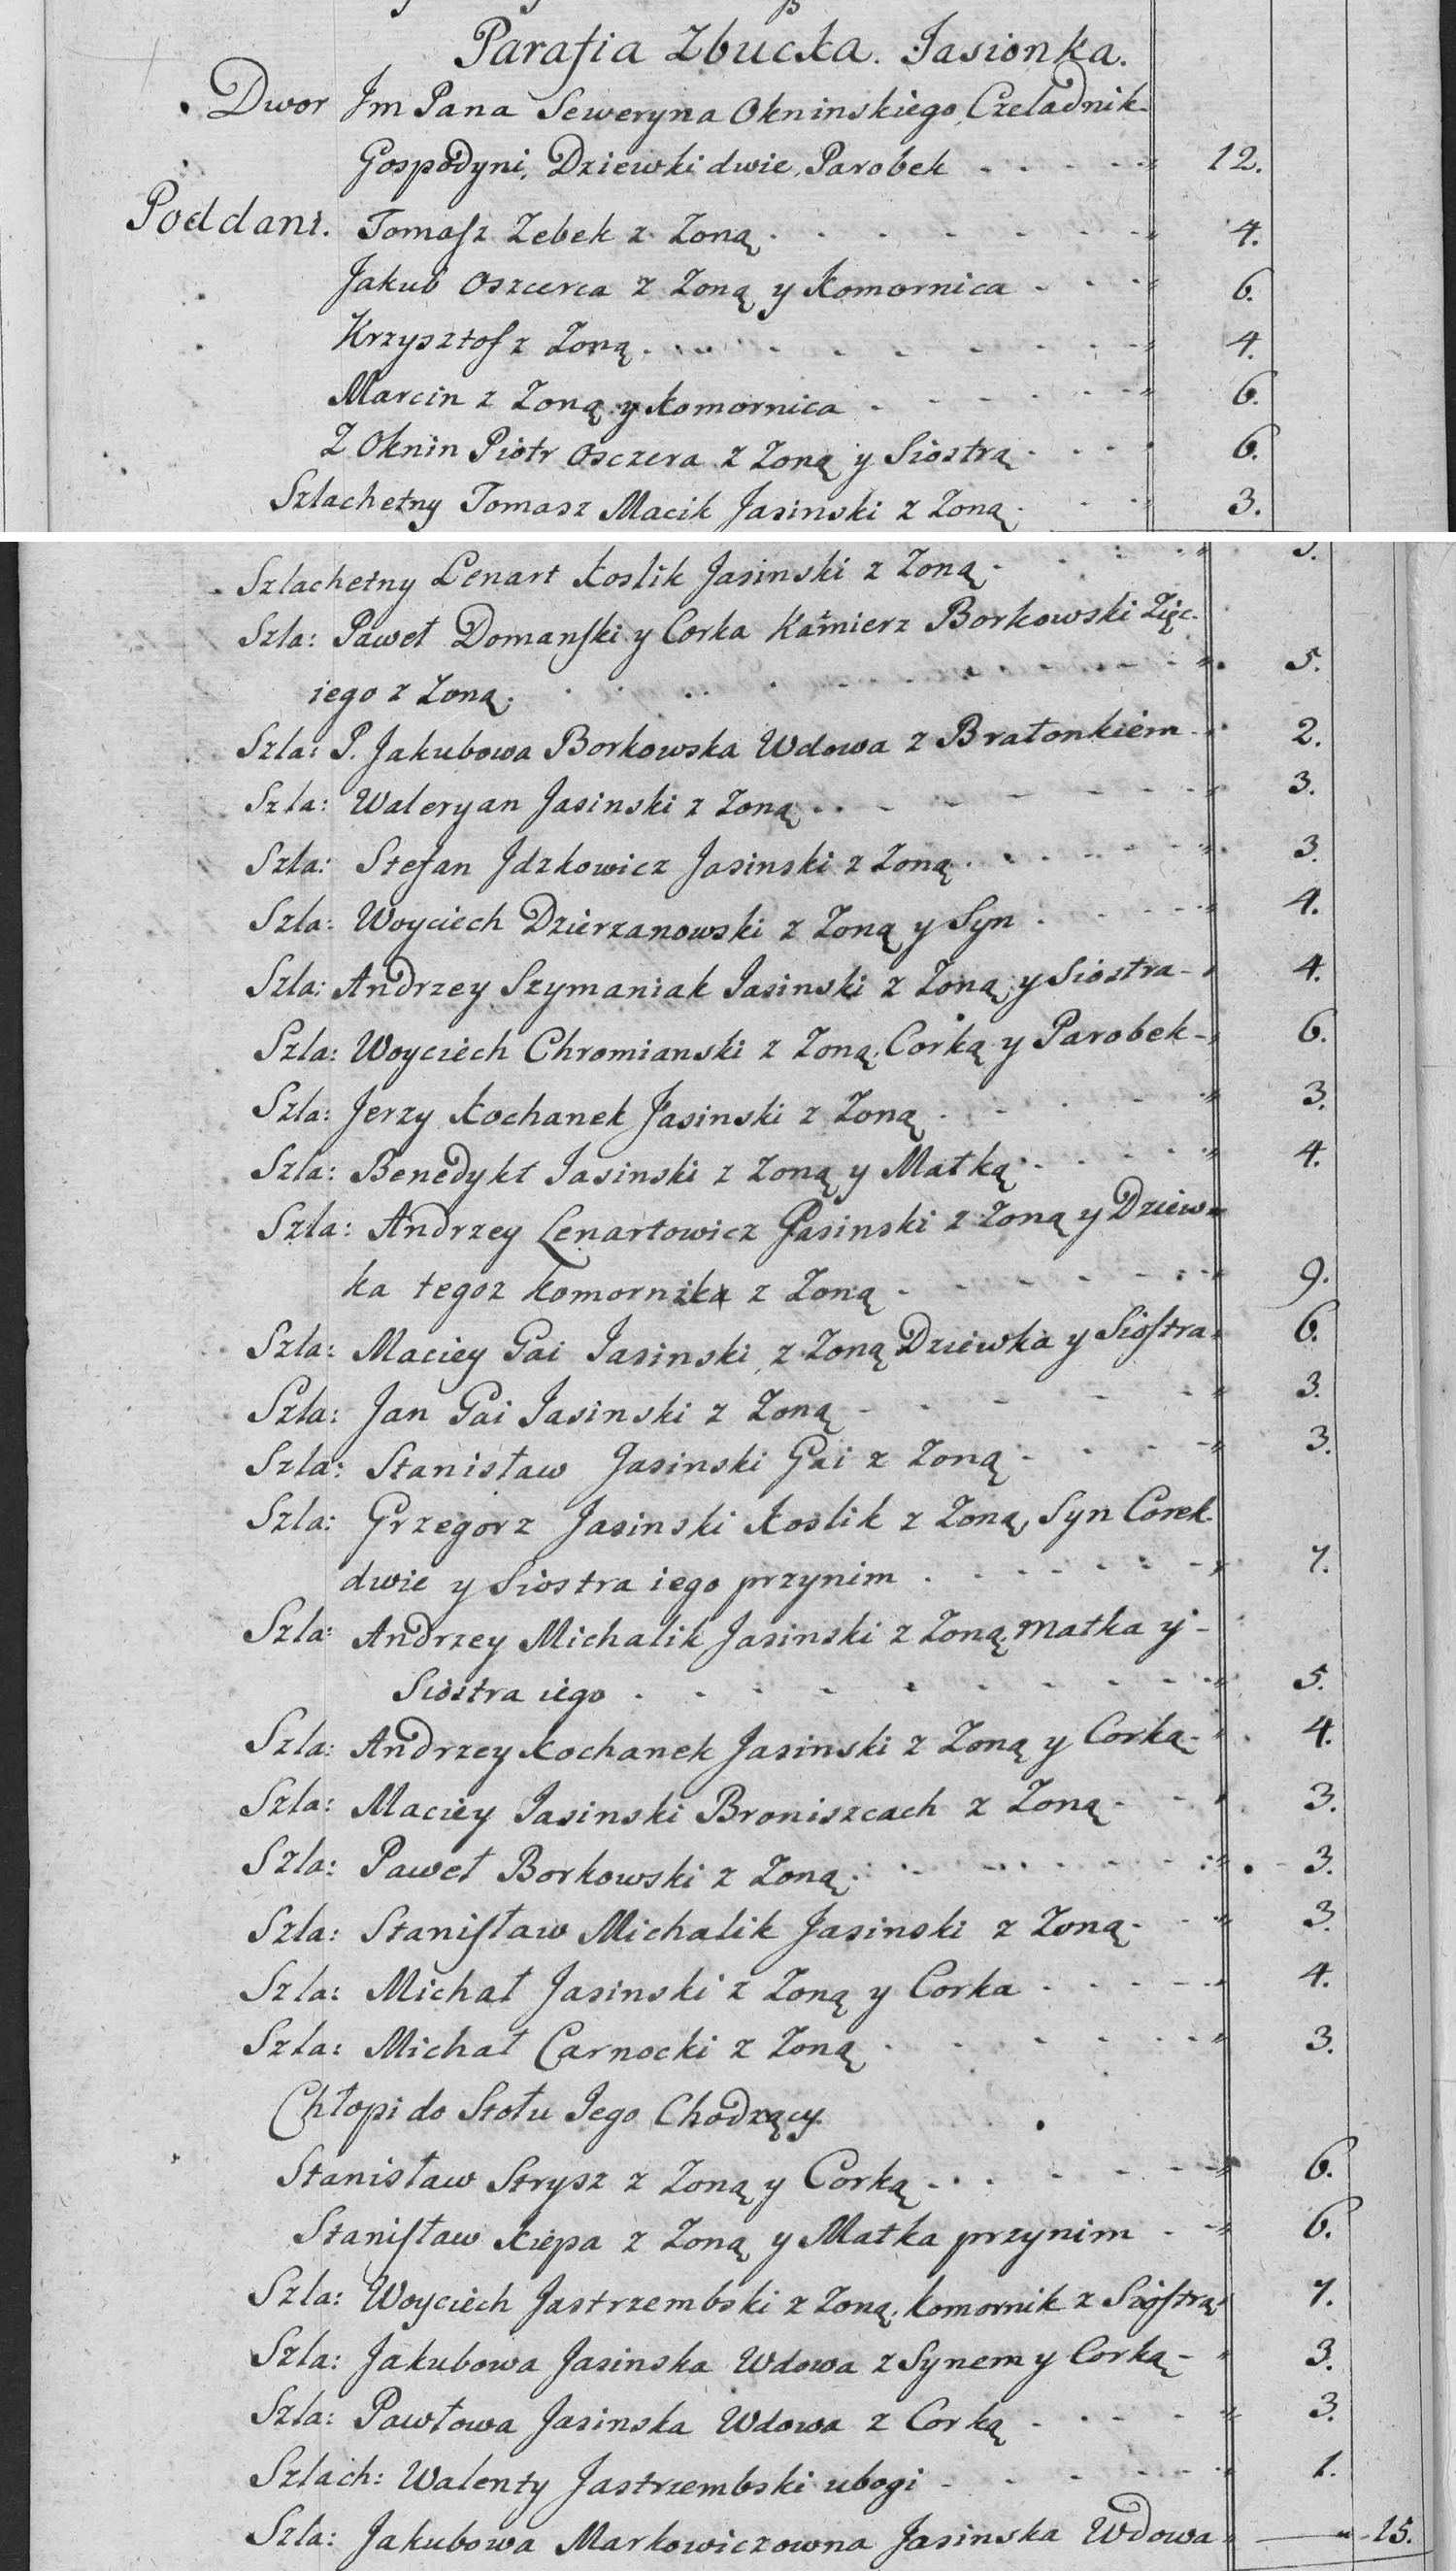 Parafia Zbucka. Jasionka.
Dwor Jm Pana Seweryna Okninskiego, Czeladnik-
Gospodyni, Dziewki dwie, Parobek - - - - - " 12.
Poddani. Tomasz Zebek z Zoną - - - - - - - " 4.
Jakub Oszcerca z Zoną y Komornica - - - " 6.
Krzysztof z Zoną - - - - - - - - " 4.
Marcin z Zoną y Komornica - - - - - - " 6.
Z Oknin Piotr Osczera z Zoną y Siostrą - - - " 6.
Szlachetny Tomasz Macik Jasinski z Zoną - - - " 3.
Szlachetny Lenart Koslik Jasinski z Zoną - - - - "
Szla: Paweł Domanski y Corka Kaźmierz Borkowski Zięc-
iego z Zoną - - - - - - - - " 5.
Szla: P. Jakubowa Borkowska Wdowa z Bratonkiem - " 2.
Szla: Waleryan Jasinski z Zoną - - - - - - - " 3.
Szla: Stefan Jdzkowicz Jasinski z Zoną - - - - - - " 3.
Szla: Woyciech Dzierzanowski z Zoną y Syn - - - - " 4.
Szla: Andrzey Szymaniak Jasinski z Zoną y Siostra - " 4.
Szla: Woyciech Chromianski z Zoną, Corką y Parobek - " 6.
Szla: Jerzy Kochanek Jasinski z Zoną - - - - " 3.
Szla: Benedykt Jasinski z Zoną y Matką - - - - " 4.
Szla: Andrzey Lenartowicz Jasinski z Zoną y Dziew=
ka tegoz komornika z Zoną - - - - - - " 9.
Szla: Maciey Gai Jasinski, z Zoną Dziewka y Siostra " 6.
Szla: Jan Gai Jasinski z Zoną - - - - - " 3.
Szla: Stanisław Jasinski Gai z Zoną - - - - " 3.
Szla: Grzegorz Jasinski Koslik z Zoną, Syn Corek
dwie y Siostra iego przynim - - - - - - " 7.
Szla: Andrzey Michalik Jasinski z Zoną, Matka y -
Siostra iego - - - - - - - - - " 5.
Szla: Andrzey Kochanek Jasinski z Zoną y Corką - " 4.
Szla: Maciey Jasinski Broniszcach z Zoną - - " 3.
Szla: Paweł Borkowski z Zoną - - - - - - - " 3.
Szla: Stanisław Michalik Jasinski z Zoną - - " 3.
Szla: Michał Jasinski z Zoną y Corka - - - - " 4.
Szla: Michał Carnocki z Zoną - - - - - - " 3.
Chłopi do Stołu Jego Chodzący.
Stanisław Strysz z Zoną y Corką - - - - - - " 6.
Stanisław Kiepa z Zoną y Matka przynim - - " 6.
Szla: Woyciech Jastrzembski z Zoną, komornik z Siostrą " 7.
Szla: Jakubowa Jasinska Wdowa z Synem y Corką - " 3.
Szla: Pawłowa Jasinska Wdowa z Corką - - - - " 3.
Szlach: Walenty Jastrzembski ubogi - - - - - " 1.
Szla: Jakubowa Markowiczowna Jasinska Wdowa " — " 15.